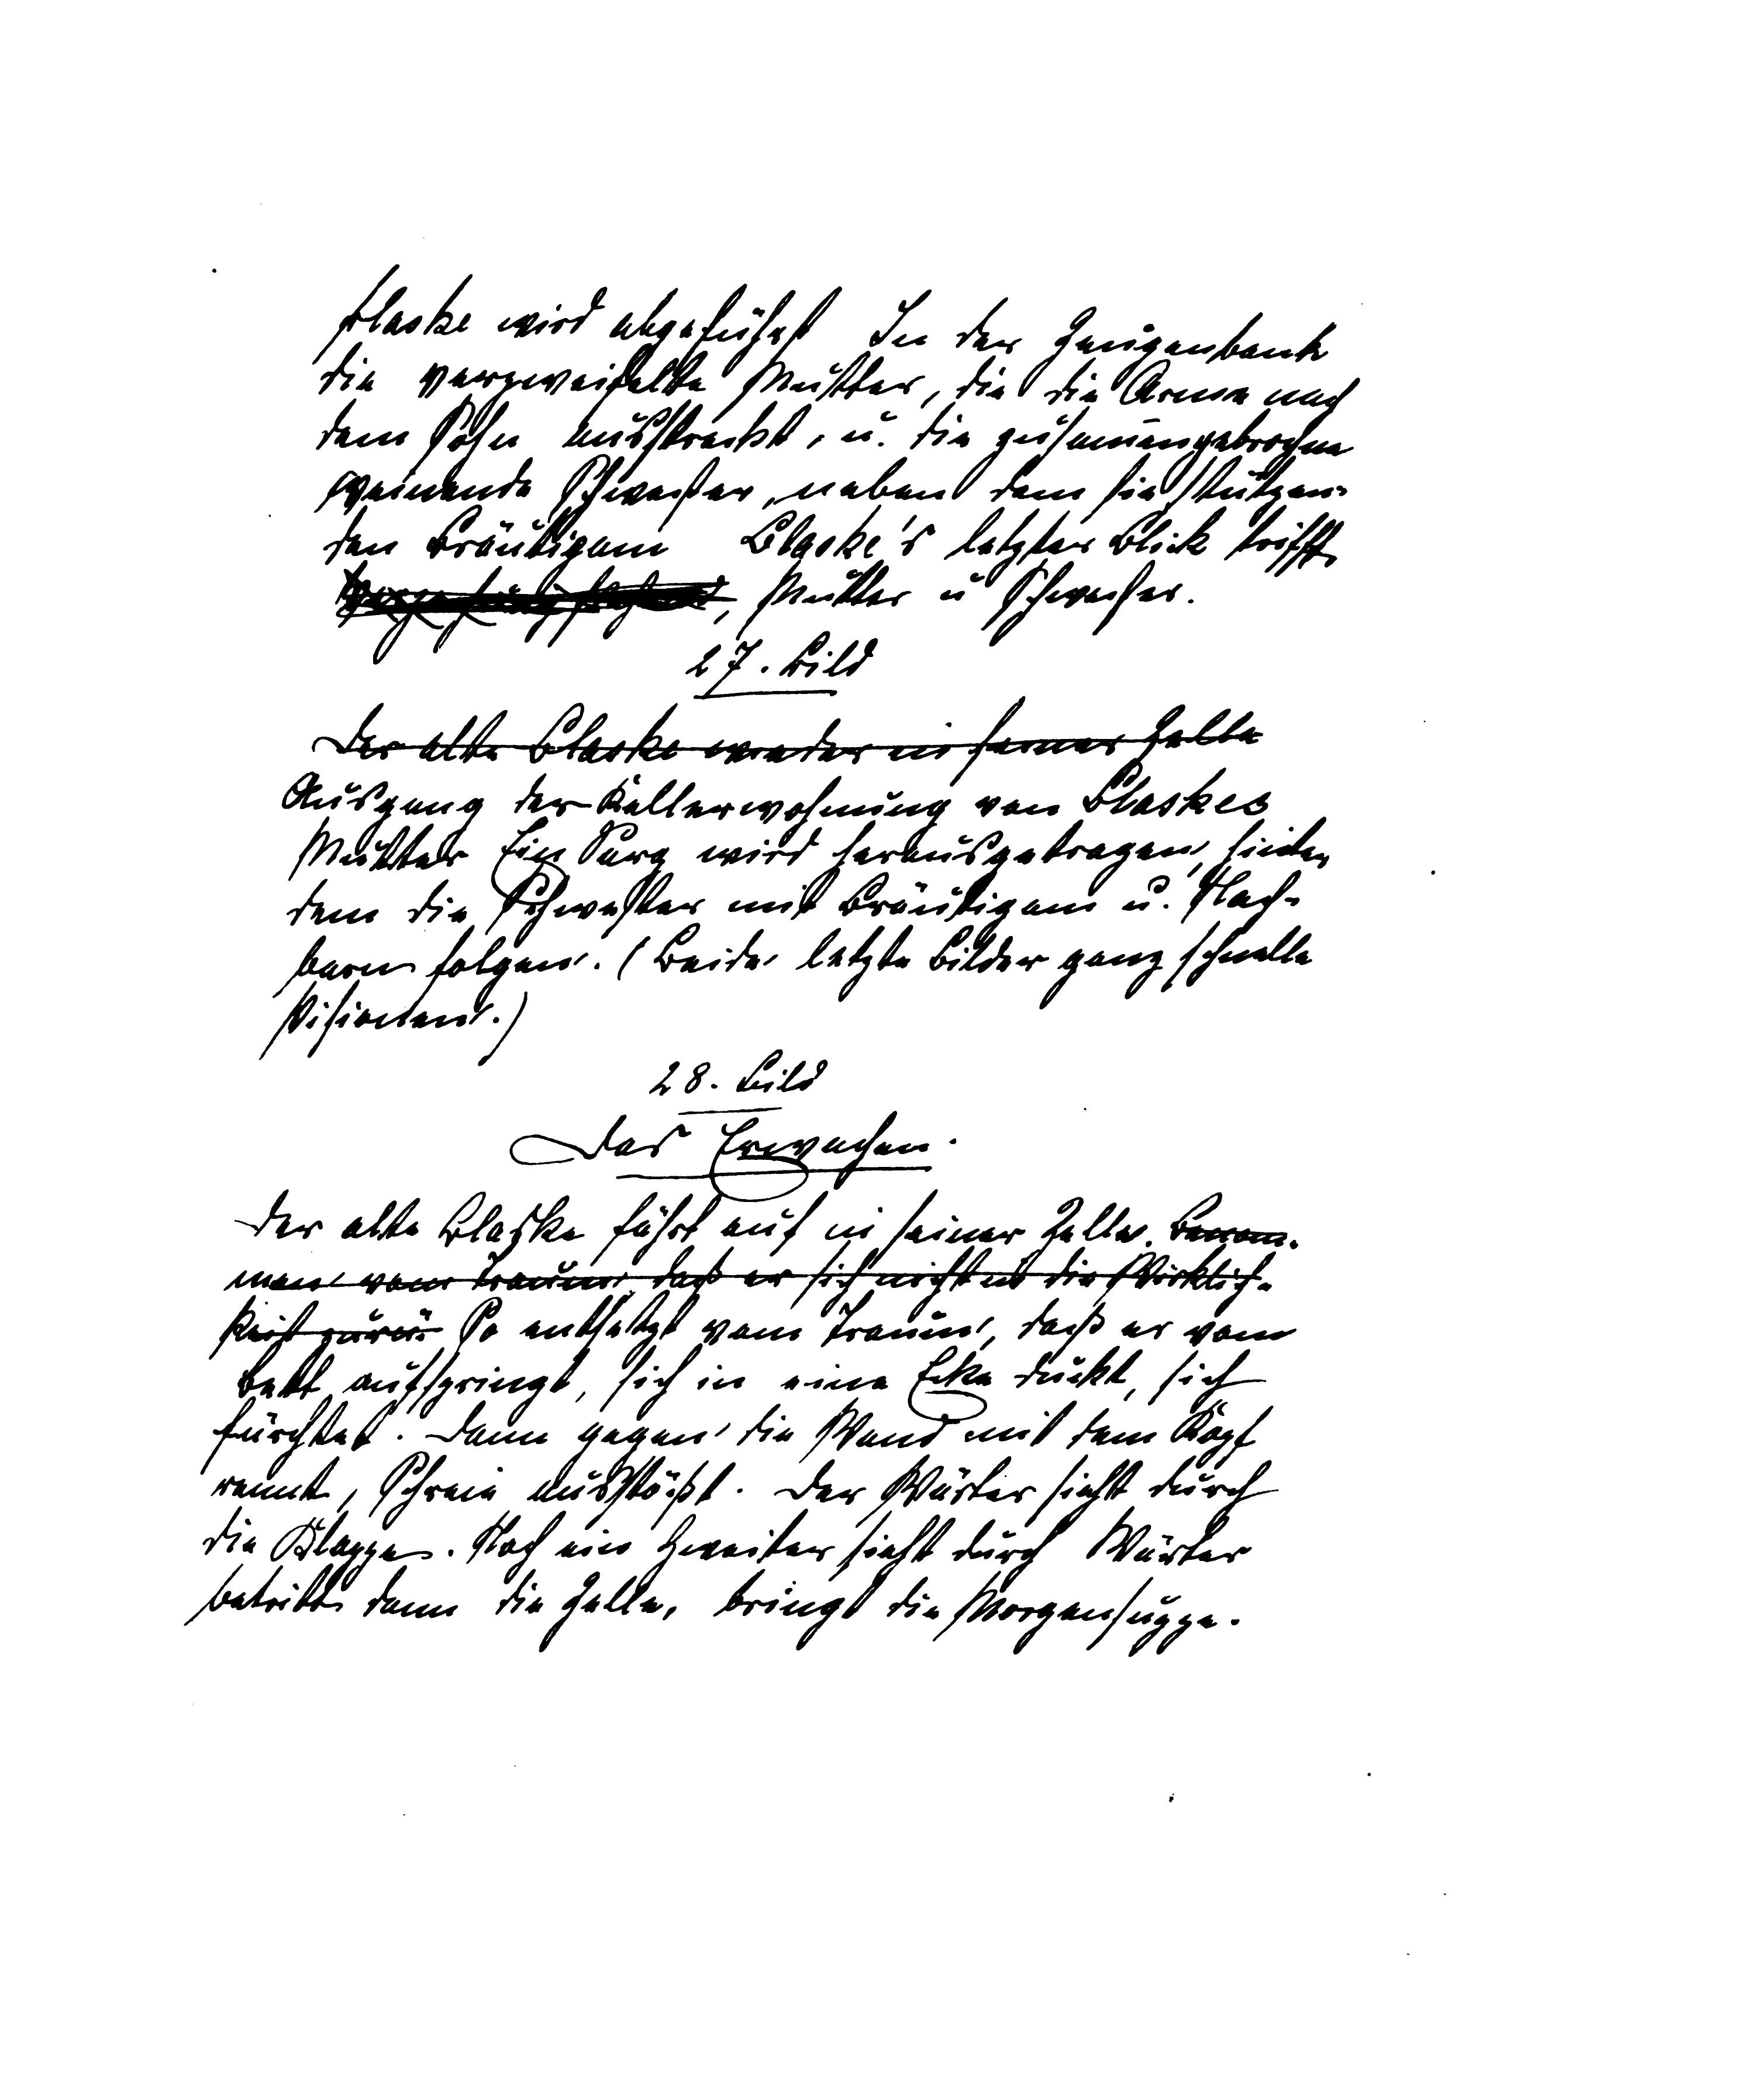 Blaske wird abgeführt In der Zeugenbank
die verzweifelte Mutter, die die Arme nach
dem Sohn ausstreckt, u. die zusam̅engebrochne
weinende Schwester, neben dem sie stützen-
den Bräutigam Blaske's letzter Blick trifft
, Mutter u Schwester.
27. Bild
Der alte Blaske wieder in seiner Zelle
Ausgang der Kellerwohnung von Blaskes
Mutter Ein Sarg wird herausgetragen, hinter
dem die Schwester mit Bräutigam u. Nach-
barn folgen. (Beide letzte Bilder ganz schnelle
Visionen.)
28. Bild
Das Erwachen.
Der alte Blaske fährt auf in seiner Zelle. Benom-
men vom Traum, daß er sich nicht in die Wirklich-
keit zurü So entsetzt vom Traum, daß er vom
Bett aufspringt, sich in eine Ecke duckt, sich
fürchtet. Dann gegen die Wand mit dem Kopf
rennt, Schreie ausstößt. Der Wärter sieht durch
die Klappe. Noch ein Zweiter sieht durch Wärter
betritt dann die Zelle, bringt die Morgensuppe.